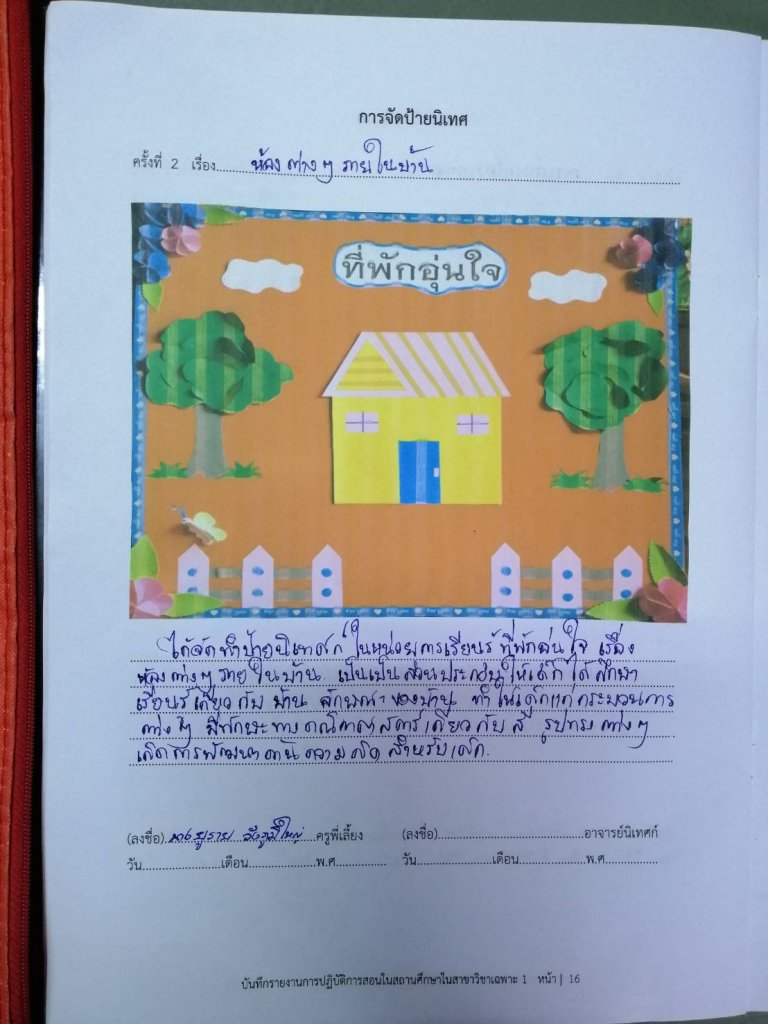 การจัดป้ายนิเทศ
ครั้งที่ 2 เรื่อง ห้องต่าง ๆ ภายในบ้าน
ที่พักอุ่นใจ
ได้จัดทำป้ายนิเทศก์ ในหน่วยการเรียนรู้ ที่พักอุ่นใจ เรื่อง
ห้องต่างๆ ภายในบ้าน เป็นเป็นส่วนประกอบให้เด็กได้ศึกษา
เรียนรู้เกี่ยวกับ บ้าน ลักษณะของบ้าน ทำให้เด็ก กระบวนการ
ต่าง ๆ มีทักษะทางคณิตศาสตร์เกี่ยวกับ สี รูปทรงต่าง ๆ
เกิดการพัฒนาด้านความคิดสำหรับเด็ก.
(ลงชื่อ) ครูพี่เลี้ยง (ลงชื่อ) อาจารย์นิเทศก์
วัน เดือน พ.ศ วัน เดือน พ.ศ
บันทึกรายงานการปฏิบัติการสอนในสถานศึกษาในสาขาวิชาเฉพาะ 1 หน้า | 16